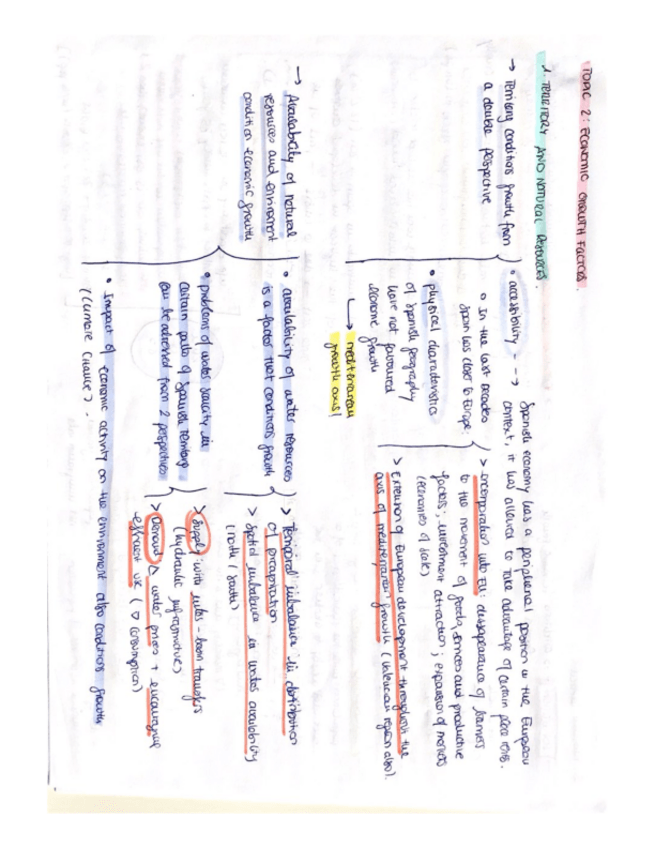 TOPIC 2: ECONOMIC GROWTH FACTORS.
1. TERRITORY AND NATURAL RESOURCES.
→ Territory conditions growth from
a double perspective
• accessibility - - →
Spanish economy has a peripheral position in the European
context, it has allowed to take advantage of certain
o In the last decades
Spain has closer to Europe:
> incorporation into EU: dissapearance of barriers
to the movement of goods, services and productive
factors; investment attraction; expansion of markets
(economies of scale)
> Extension of European development throughout the
axis of mediterranean growth (Valencian region also).
• physical characteristics
of Spanish geography
have not favoured
economic growth
↳ mediterranean
growth axis!
→ Availability of natural
resources and environment
condition economic growth
• availability of water resources
is a factor that conditions growth
> Temporal imbalance in distribution
of precipitation
> Spatial imbalance in water availability
(north / south)
• problems of water scarcity in
certain parts of Spanish territory
can be adressed from 2 perspectives
> Supply: with inter-basin transfers
(hydraulic infrastructure)
> Demand: Δ water prices + encourage
efficient use (∇ consumption)
• Impact of economic activity on the environment also conditions growth
(climate change).